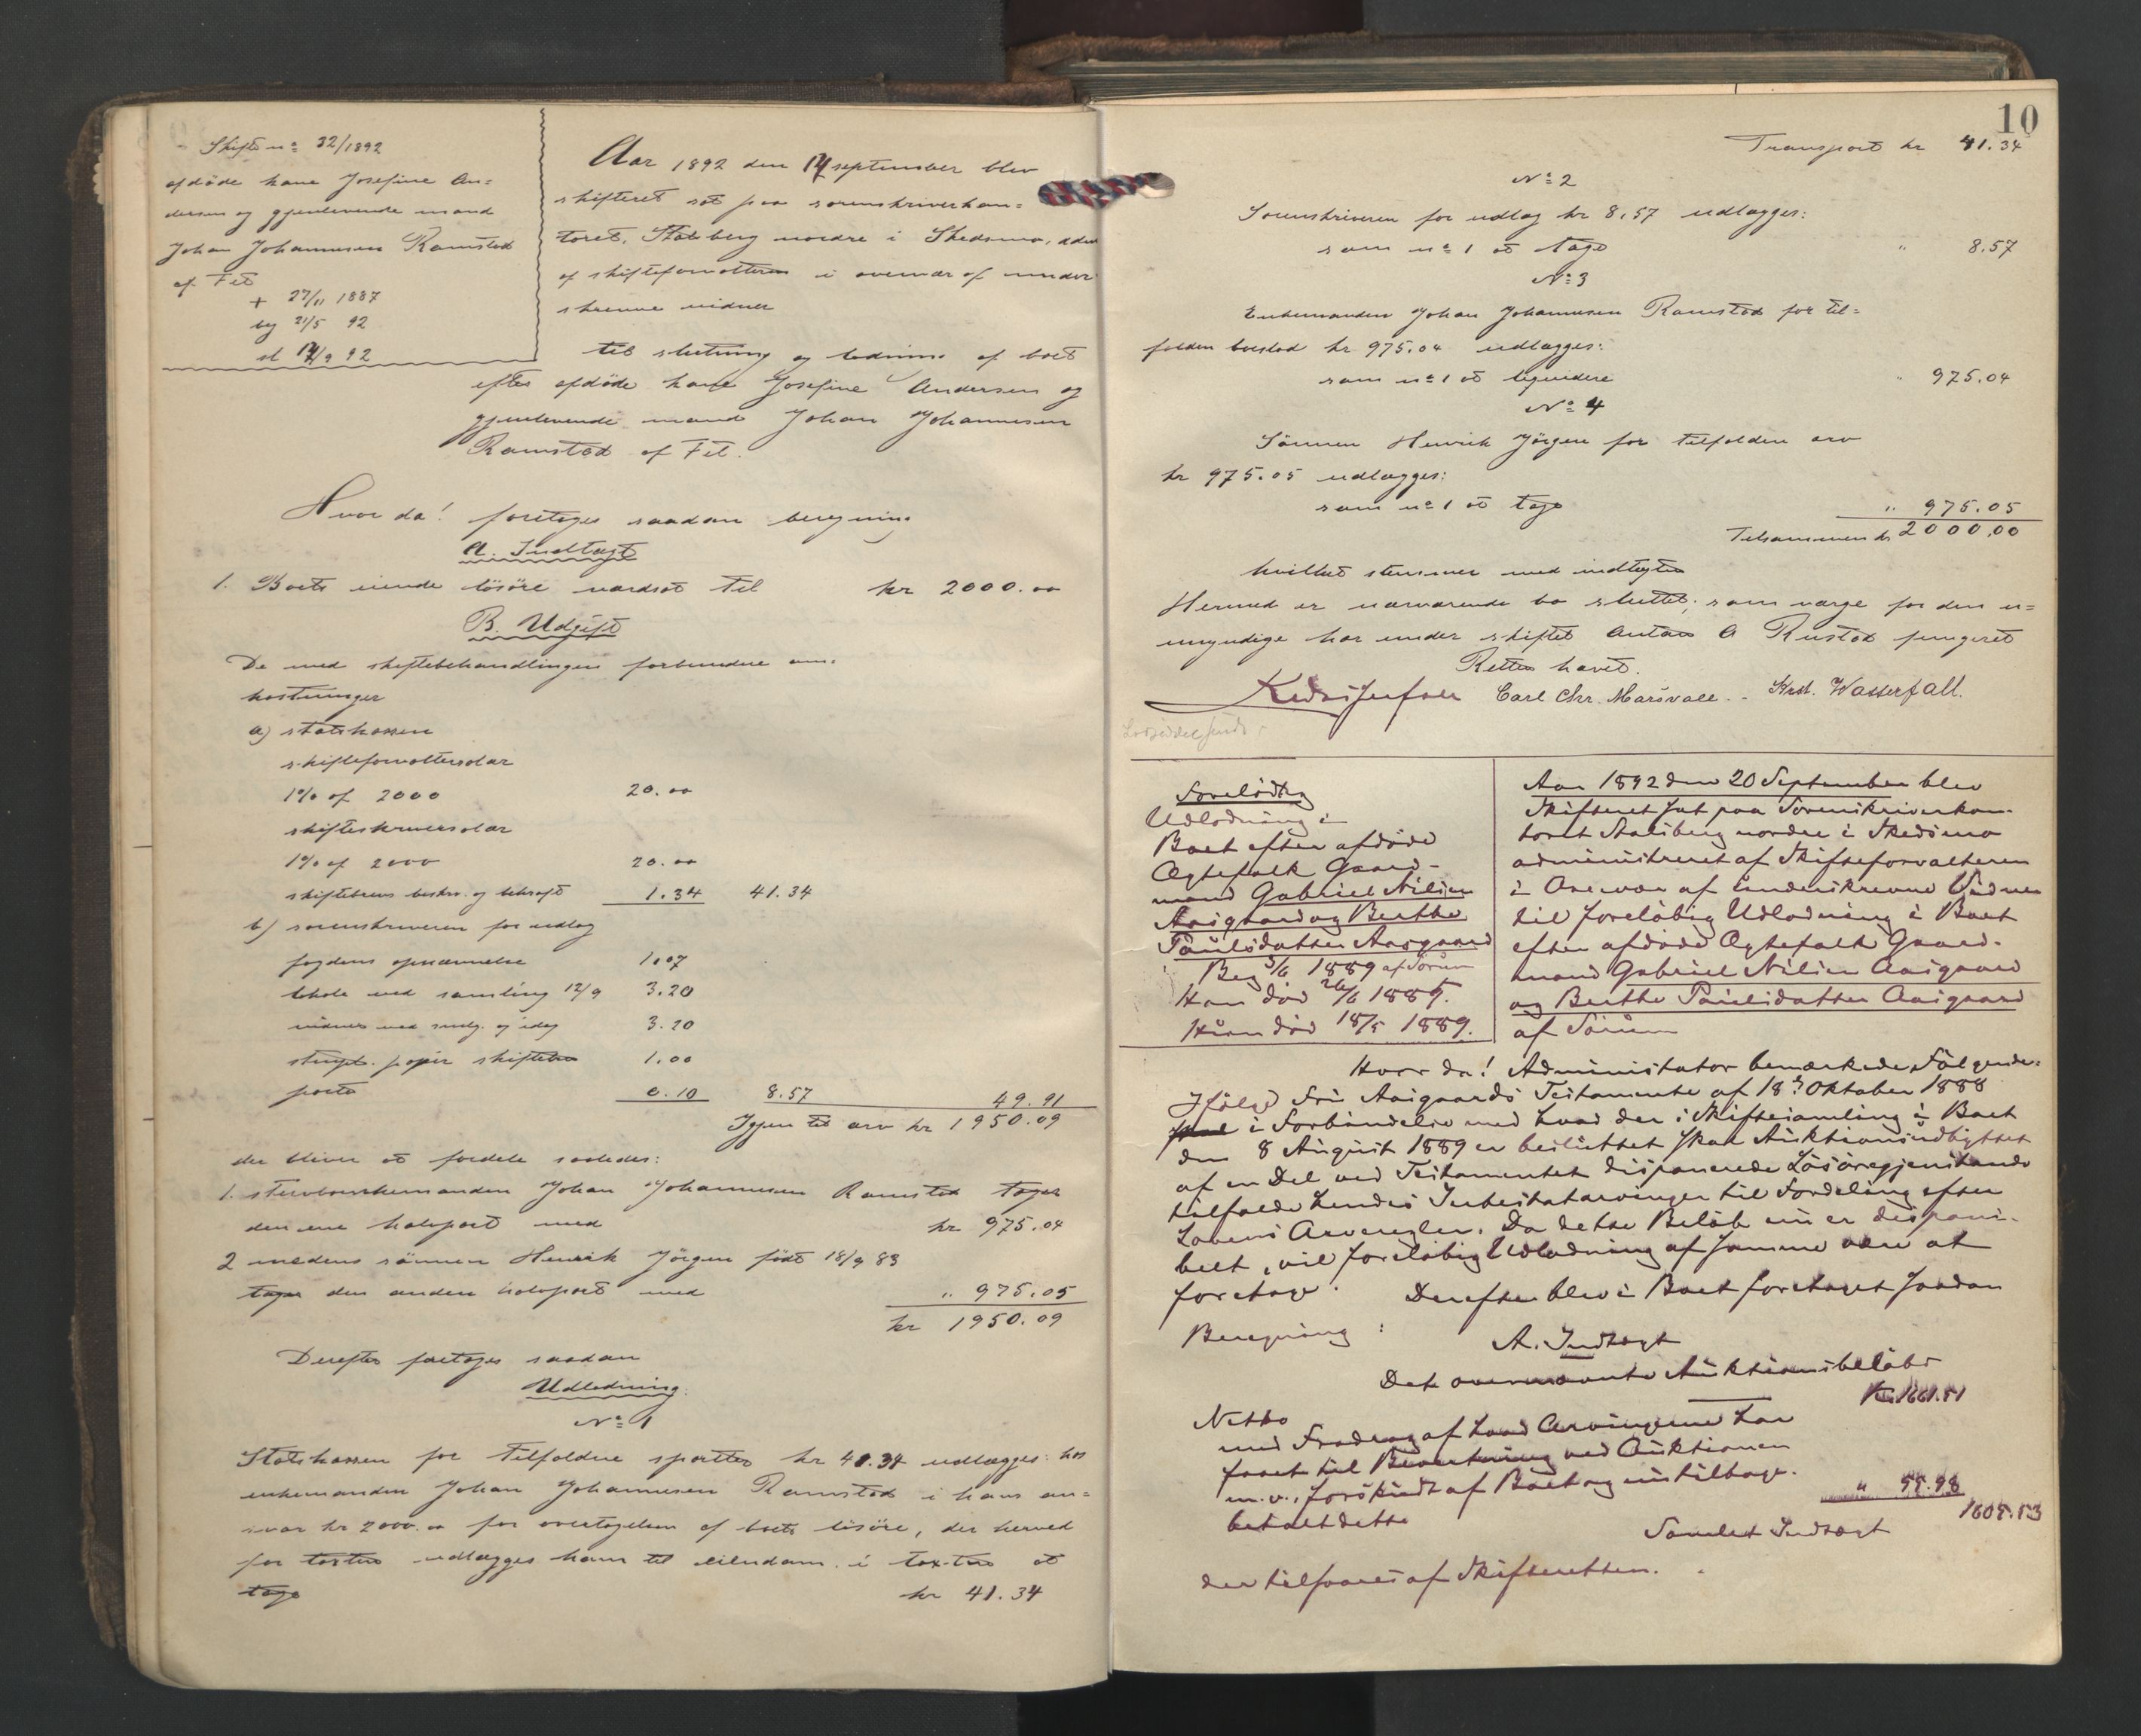 Skifte nº 32/1892
afdöde kone Josefine An=
dersen og gjenlevende mand
Johan Johannesen Ramstad
af Fet
+ 27/11 1887
beg 21/5 92
sl 14/9 92
Aar 1892 den 14 september blev
skifteret sat paa sorenskriverkon=
toret, Stalsberg nordre i Skedsmo, adm
af skifteforvalteren i overvær af under
skrevne vidner
til slutning og lodning af boet
efter afdöde kone Josefine Andersen og
gjenlevende mand Johan Johannesen
Ramstad af Fet.
Hvor da! foretoges saadan beregning
A. Indtægt
1. Boets eiende lösöre værdsat til kr 2000.00
B. Udgift
De med skiftebehandlingen forbundne om=
kostninger
a) statskassen
skifteforvaltersalær
1% af 2000 20.00
skifteskriversalær
1% af 2000 20.00
skiftebrevs beskr. og bekræft 1.34 41.34
b) sorenskriveren for udlæg
fogdens opnævnelse 1.07
lokale ved samling 12/9 3.20
vidner ved samlg. og idag 3.20
stempl. papir skiftebr 1.00
porto 0.10 8.57 49.91
Igjen til arv kr 1950.09
der bliver at fordele saaledes:
1. stervboenkemanden Johan Johannesen Ramstad tager
den ene halvpart med kr 975.04
2 medens sönnen Henrik Jörgen födt 18/9 83
tager den anden halvpart med " 975.05
kr 1950.09
Derefter foretoges saadan
Udlodning:
Nº 1
Statskassen for tilfaldne sportler kr 41.34 udlægges: hos
enkemanden Johan Johannesen Ramstad i hans an=
svar kr 2000.00 for overtagelsen af boets lösöre, der herved
for taxten udlægges ham til eiendom, i taxten at
tage kr 41.34
10
Transport kr 41.34
Nº 2
Sorenskriveren for udlæg kr 8.57 udlægges:
som nº 1 at tage " 8.57
Nº 3
Enkemanden Johan Johannesen Ramstad for til=
falden boeslod kr 975.04 udlægges:
som nº 1 at liqvidere " 975.04
Nº 4
Sönnen Henrik Jörgen for tilfalden arv
kr 975.05 udlægges:
som nº 1 at tage " 975.05
Tilsammen kr 2000.00
hvilket stemmer med indtægten
Hermed er nærværende bo sluttet; som værge for den u=
myndige har under skiftet Anton A Rustad fungeret
Retten hævet.
Carl Chr. Marsvall. - Krst. Wasserfall.
Foreløbig
Udlodning i
Boet efter afdöde
Ægtefolk Gaard-
mand Gabriel Nilsen
Aasgaard og Berthe
Paulsdatter Aasgaard
Beg 3/6 1889 af Sörum
Han död 26/6 1885.
Hun död 18/5 1889.
Aar 1892 den 20 September blev
Skifteret sat paa Sorenskriverkon-
toret Stalsberg nordre i Skedsmo
administreret af Skifteforvalteren
i Overvær af underskrevne Vidner
til foreløbig Udlodning i Boet
efter afdöde Ægtefolk Gaard-
mand Gabriel Nilsen Aasgaard
og Berthe Paulsdatter Aasgaard
af Sörum
Hvor da! Administrator bemærkede Fölgende:
Ifölge Fru Aasgaards Testamente af 18de Oktober 1888
i Forbindelse med hvad der i Skiftesamling i Boet
den 8 August 1889 er besluttet skal Auktionsudbyttet
af en Del ved Testamentet disponerede Lösöregjenstande
tilfalde hendes Intestatarvinger til Fordeling efter
Lovens Arveregler. Da dette Belöb nu er disponi-
belt, vil foreløbig Udlodning af samme være at
foretage. Derefter blev i Boet foretaget saadan
Beregning:
A. Indtægt
Det ovennævnte Auktionsbelöbs
Netto Kr. 1661.51
med Fradrag af hvad Arvingerne har
faaet til Bevertning ved Auktionen
m. v., forskudt af Boet og nu tilbage-
betalt dette " 55.98
Samlet Indtægt 1605.53
der tilsvares af Skifteretten.